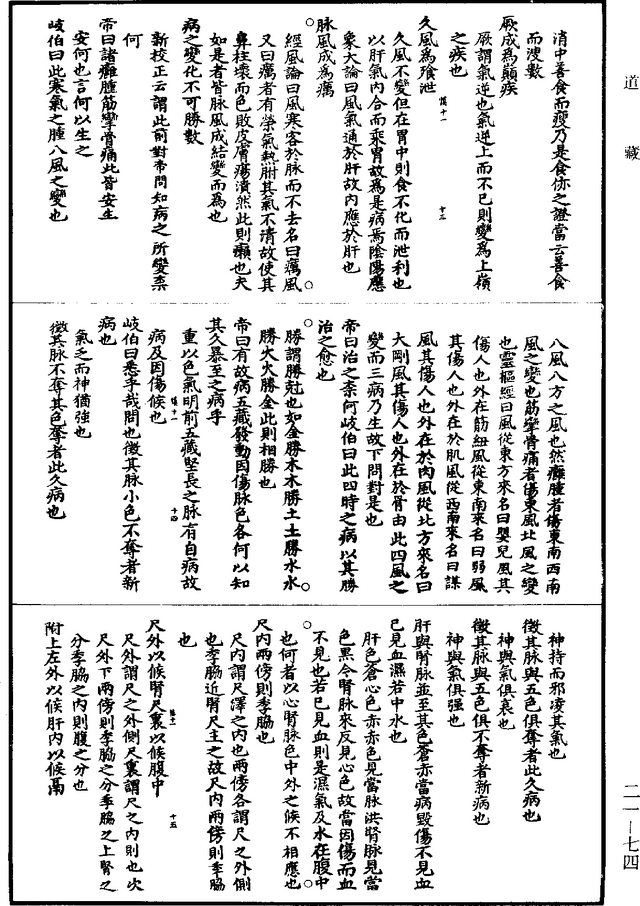 道藏
消中善食而瘦乃是食㑊之證當云善食
而溲數
厥成為巔疾
厥謂氣逆也氣逆上而不已則變為上巔
之疾也
久風為飱泄
久風不變但在胃中則食不化而泄利也
以肝氣內合而乘胃故為是病焉陰陽應
象大論曰風氣通於肝故內應於肝也
脉風成為癘
經風論曰風寒客於脉而不去名曰癘風
又曰癘者有榮氣熱胕其氣不清故使其
鼻柱壞而色敗皮膚瘍潰然此則癩也夫
如是者皆脉風成結變而為也
病之變化不可勝數
新校正云謂此前對帝問知病之所變柰
何
帝曰諸癰腫筋攣骨痛此皆安生
安何也言何以生之
岐伯曰此寒氣之腫八風之變也
八風八方之風也然癰腫者傷東南西南
風之變也筋攣骨痛者傷東風北風之變
也靈樞經曰風從東方來名曰嬰兒風其
傷人也外在筋紐風從東南來名曰弱風
其傷人也外在於肌風從西南來名曰謀
風其傷人也外在於肉風從北方來名曰
大剛風其傷人也外在於骨由此四風之
變而三病乃生故下問對是也
帝曰治之柰何岐伯曰此四時之病以其勝
治之愈也
勝謂勝尅也如金勝木木勝土土勝水水
勝火火勝金此則相勝也
帝曰有故病五藏發動因傷脉色各何以知
其久暴至之病乎
重以色氣明前五藏堅長之脉有自病故
病及因傷候也
岐伯曰悉乎哉問也徵其脉小色不奪者新
病也
氣乏而神猶強也
徵其脉不奪其色奪者此久病也
神持而邪凌其氣也
徵其脉與五色俱奪者此久病也
神與氣俱衰也
徵其脉與五色俱不奪者新病也
神與氣俱强也
肝與腎脉並至其色蒼赤當病毀傷不見血
已見血濕若中水也
肝色蒼心色赤赤色見當脉洪腎脉見當
色黑今腎脉來反見心色故當因傷而血
不見也若已見血則是濕氣及水在腹中
也何者以心腎脉色中外之候不相應也
尺內兩傍則季脇也
尺內謂尺澤之內也兩傍各謂尺之外側
也季脇近腎尺主之故尺內兩傍則季脇
也
尺外以候腎尺裏以候腹中
尺外謂尺之外側尺裏謂尺之內則也次
尺外下兩傍則季脇之分季脇之上腎之
分季脇之內則腹之分也
附上左外以候肝內以候鬲
二一—七四